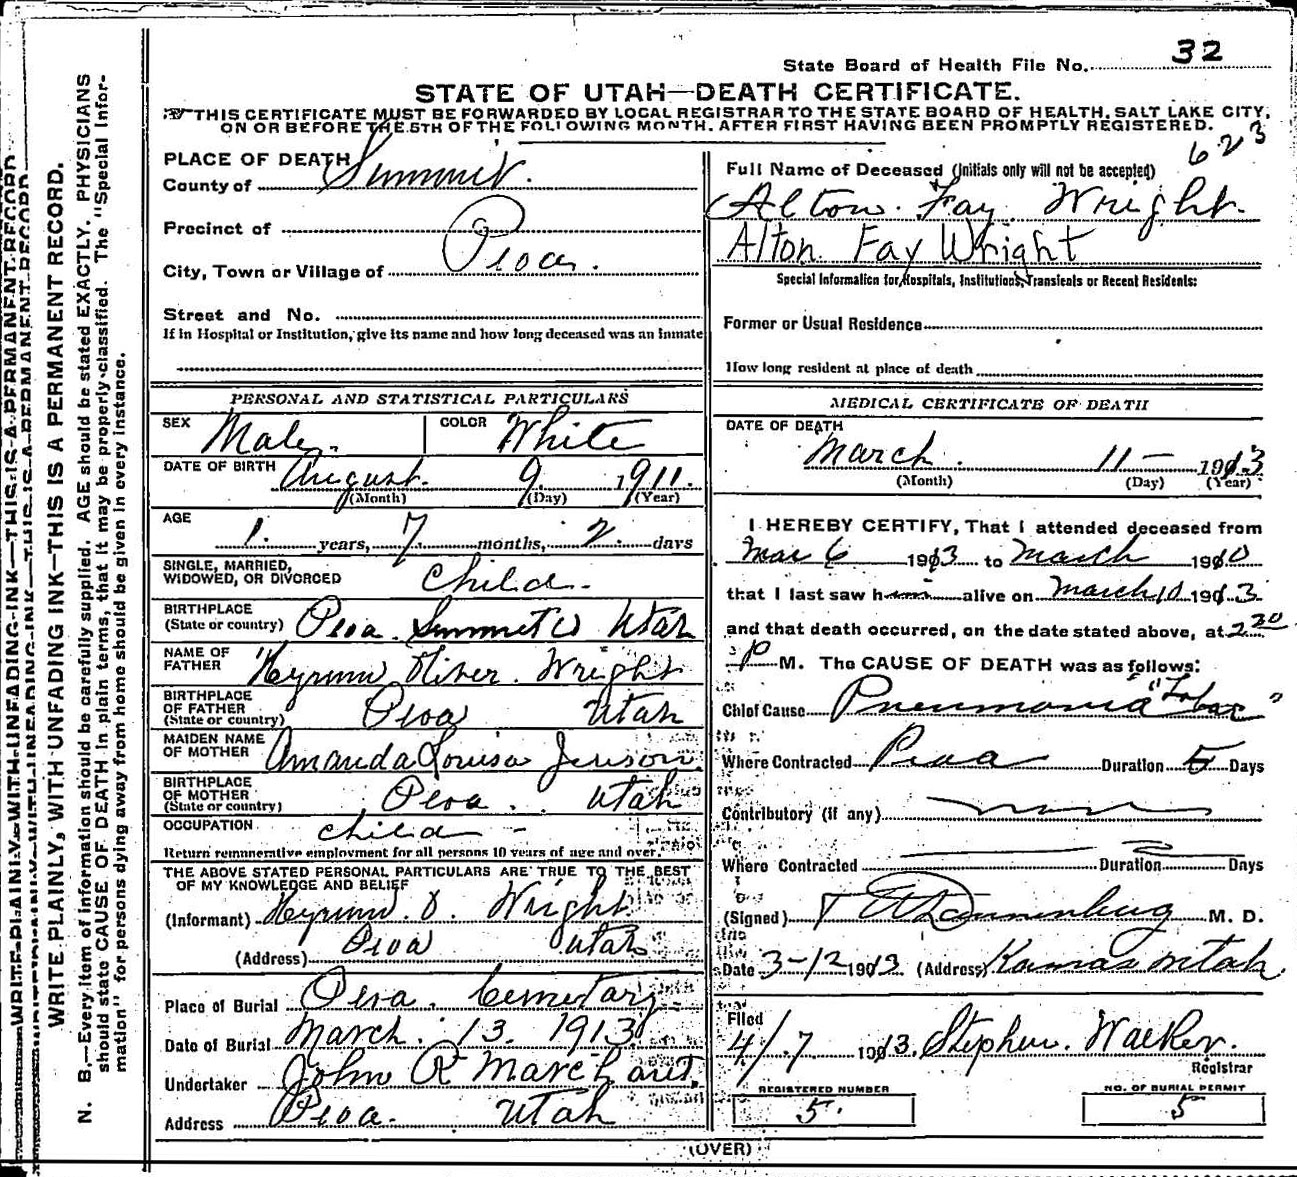 State Board of Health File No. 32
STATE OF UTAH—DEATH CERTIFICATE.
THIS CERTIFICATE MUST BE FORWARDED BY LOCAL REGISTRAR TO THE STATE BOARD OF HEALTH, SALT LAKE CITY,
ON OR BEFORE THE 5TH OF THE FOLLOWING MONTH, AFTER FIRST HAVING BEEN PROMPTLY REGISTERED.
623
PLACE OF DEATH
County of Summit.
Precinct of
City, Town or Village of Peoa.
Street and No.
If in Hospital or Institution, give its name and how long deceased was an inmate
PERSONAL AND STATISTICAL PARTICULARS
SEX Male. COLOR White
DATE OF BIRTH August. 9 1911.
(Month) (Day) (Year)
AGE
1. years, 7 months, 2. days
SINGLE, MARRIED,
WIDOWED, OR DIVORCED Child.
BIRTHPLACE
(State or country) Peoa. Summit Co Utah
NAME OF
FATHER Hyrum Oliver. Wright
BIRTHPLACE
OF FATHER
(State or country) Peoa Utah
MAIDEN NAME
OF MOTHER Amanda Louisa Jenson
BIRTHPLACE
OF MOTHER
(State or country) Peoa. Utah
OCCUPATION child -
Return remunerative employment for all persons 10 years of age and over.
THE ABOVE STATED PERSONAL PARTICULARS ARE TRUE TO THE BEST
OF MY KNOWLEDGE AND BELIEF
(Informant) Hyrum. O. Wright
(Address) Peoa Utah
Place of Burial Peoa. Cemetary
Date of Burial March. 13. 1913
Undertaker John R Marchant,
Address Peoa. Utah
Full Name of Deceased (Initials only will not be accepted)
Alton. Fay. Wright.
Alton Fay Wright
Special Information for Hospitals, Institutions, Transients or Recent Residents:
Former or Usual Residence
How long resident at place of death
MEDICAL CERTIFICATE OF DEATH
DATE OF DEATH
March. 11— 1913
(Month) (Day) (Year)
I HEREBY CERTIFY, That I attended deceased from
Mar 6 1913 to March 1910
that I last saw him alive on March 10 1913.
and that death occurred, on the date stated above, at 2 20
P M. The CAUSE OF DEATH was as follows:
Chief Cause Pneumonia "Lobar"
Where Contracted Peoa Duration 5 Days
Contributory (if any)
Where Contracted Duration Days
(Signed) M. D.
Date 3-12 1913. (Address) Kamas Utah
Filed
4/7 1913. Stephen. Walker.
Registrar
REGISTERED NUMBER
5.
NO. OF BURIAL PERMIT
5
(OVER)
WRITE PLAINLY, WITH UNFADING INK—THIS IS A PERMANENT RECORD.
N. B.—Every item of information should be carefully supplied. AGE should be stated EXACTLY. PHYSICIANS
should state CAUSE OF DEATH in plain terms, that it may be properly classified. The "Special Infor-
mation" for persons dying away from home should be given in every instance.